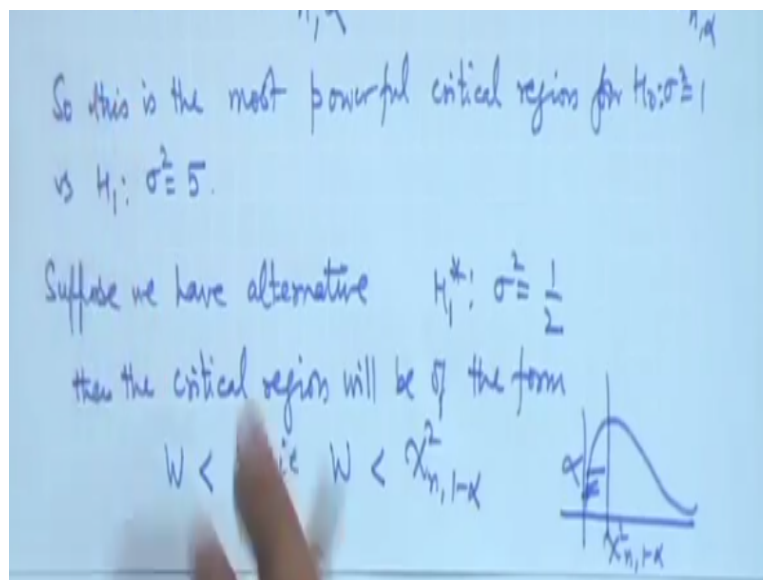 n, α n, α
So this is the most powerful critical region for H₀: σ² = 1
vs H₁: σ² = 5.
Suppose we have alternative H₁*: σ² = 1/2
then the critical region will be of the form
W < ie W < χ²ₙ,₁₋α
α
χ²ₙ,₁₋α